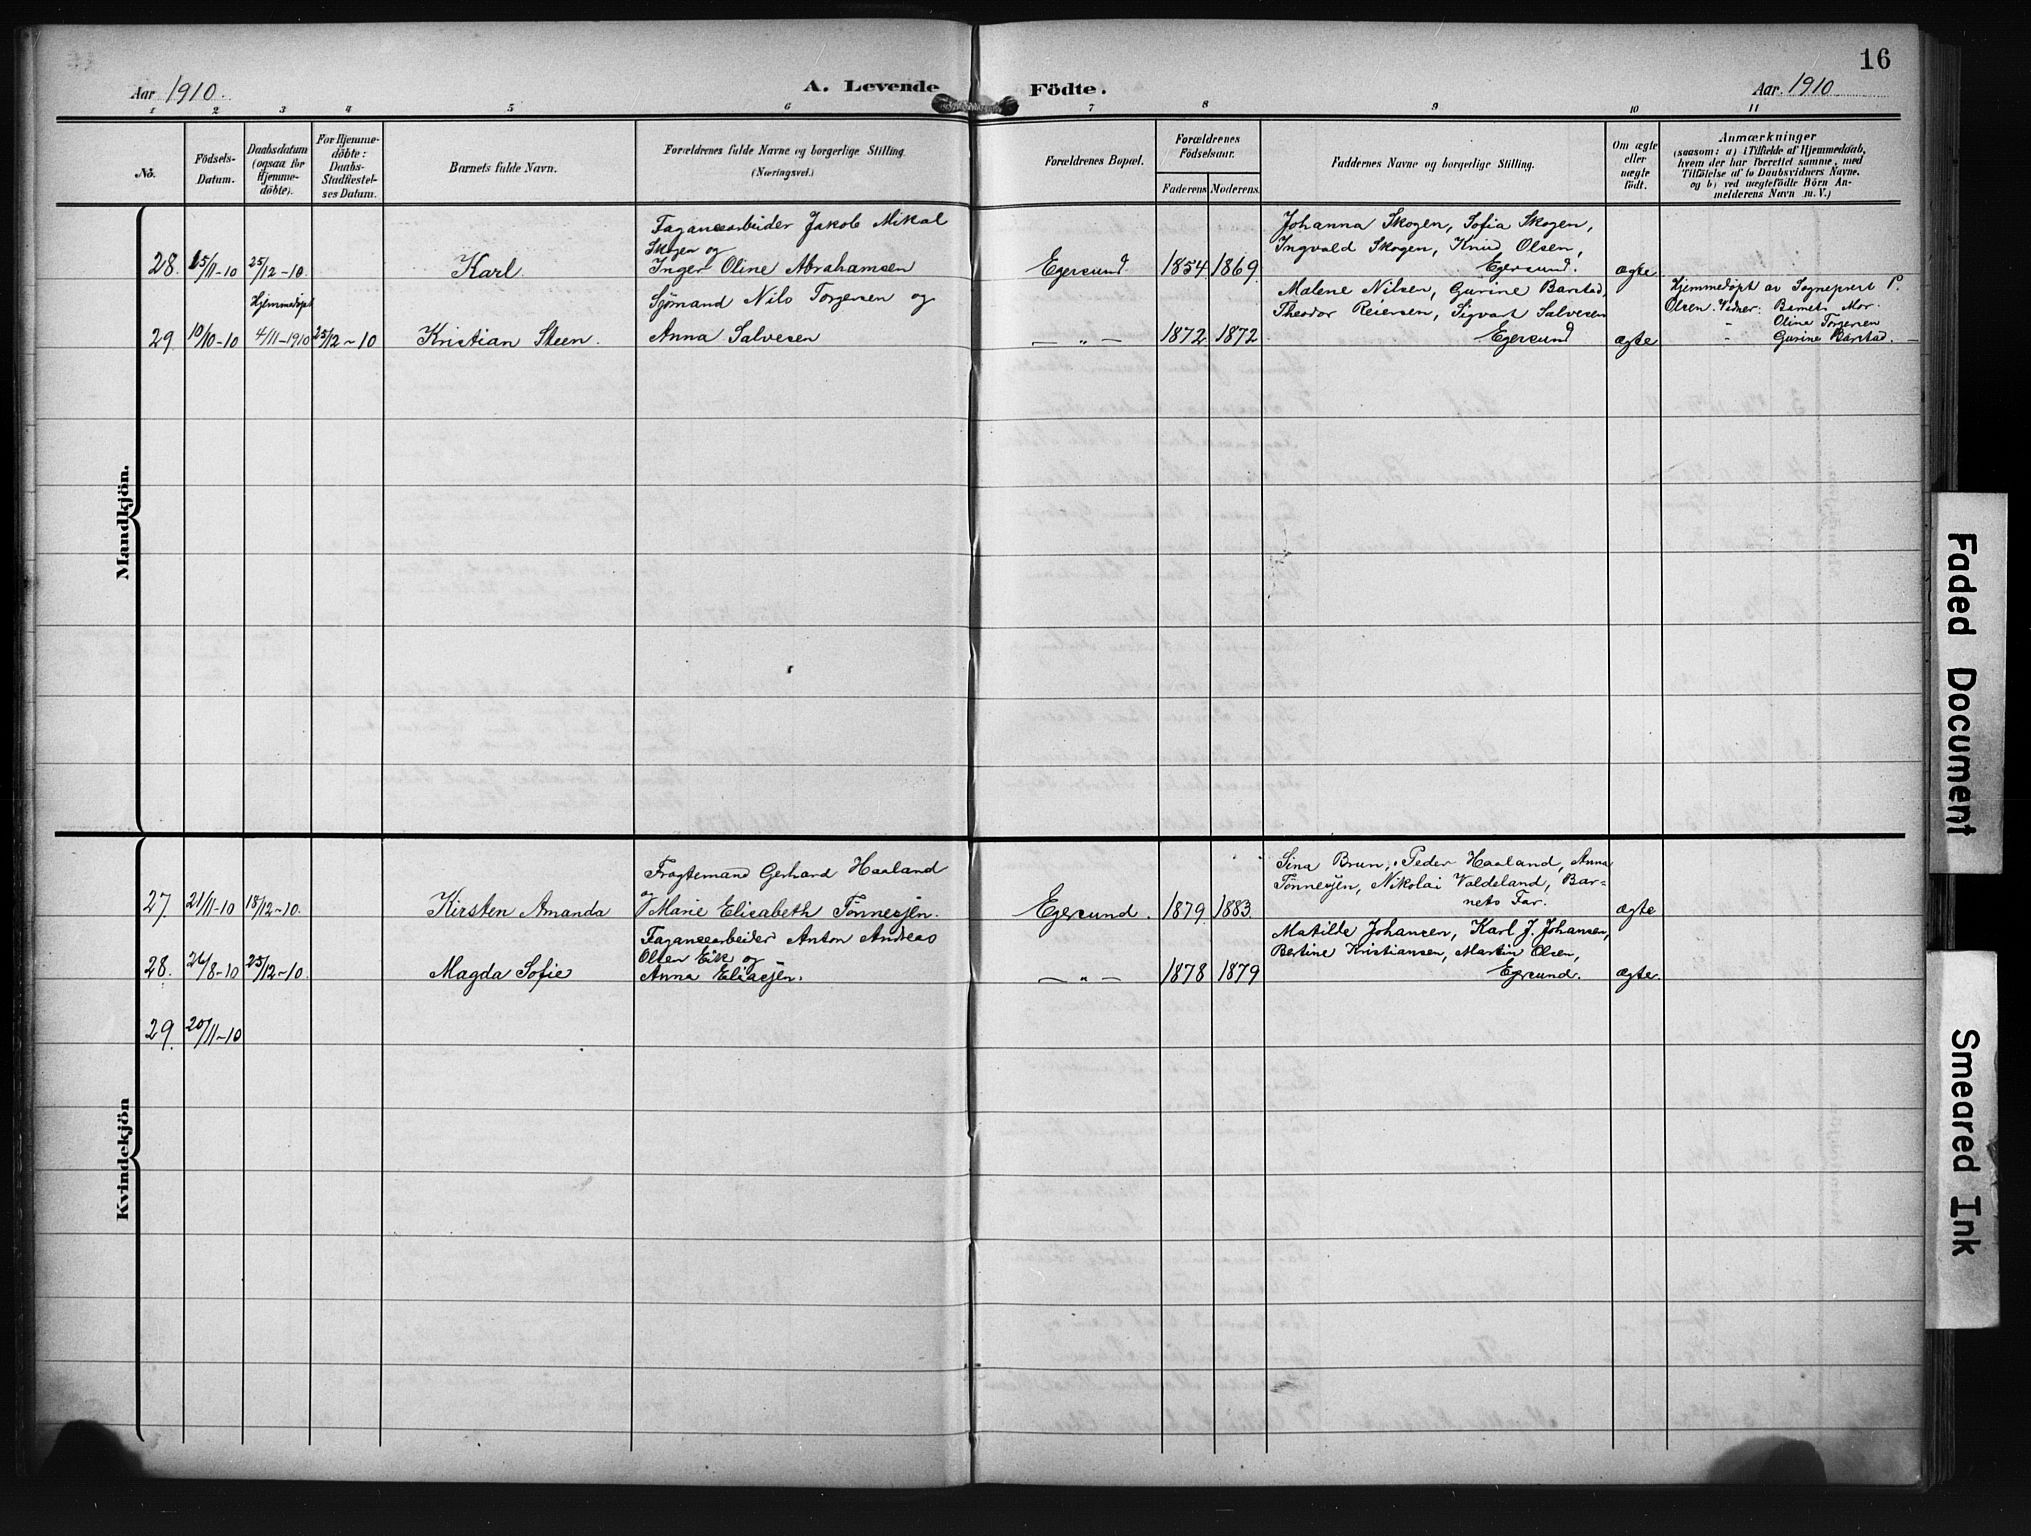 16
Aar 1910.
A. Levende Födte.
Aar 1910
1 2 3 4 5 6 7 8 9 10 11
No.
Födsels-
Datum.
Daabsdatum
(ogsaa for
Hjemme-
döbte).
For Hjemme-
döbte:
Daabs-
Stadfæstel-
ses Datum.
Barnets fulde Navn.
Forældrenes fulde Navne og borgerlige Stilling.
(Næringsvei.)
Forældrenes Bopæl.
Forældrenes
Födselsaar.
Faderens Moderens.
Faddernes Navne og borgerlige Stilling.
Om ægte
eller
uægte
födt.
Anmærkninger
(saasom: a) i Tilfælde af Hjemmedaab,
hvem der har forrettet samme, med
Tilföielse af to Daabsvidners Navne,
og b) ved uægtefödte Börn An-
melderens Navn m. V.)
Mandkjön.
28. 15/11-10 25/12-10. Karl.
Fagancearbeider Jakob Mikal
Skogen og
Inger Oline Abrahamsen
Egersund 1854 1869.
Johanna Skogen, Sofia Skogen,
Ingvald Skogen, Knud Olsen,
Egersund. ægte
29. 10/10-10 Hjemmedøpt
4/11-1910 25/12-10 Kristian Steen.
Sjømand Nils Torgersen og
Anna Salvesen
— " — 1872 1872
Malene Nilsen, Gurine Barstad,
Theodor Reiersen, Sigvart Salvesen
Egersund ægte
Hjemmedøpt av Sognepræst P.
Olsen. Vidner: Barnets Mor.
- Olina Torgersen
- Gurine Barstad. -
Kvindekjön
27 21/11-10 18/12-10. Kirsten Amanda
Fragtemand Gerhard Haaland
og
Marie Elisabeth Tønnesjen.
Egersund. 1879 1883.
Sina Brun, Peder Haaland, Anna
Tønnesjen, Nikolai Valdeland, Bar=
nets Far. ægte
28. 26/8-10 25/12-10. Magda Sofie
Fagancearbeider Anton Andreas
Olsen Eik og
Anna Eliasjen.
— " — 1878 1879
Matilde Johansen, Karl J. Johansen,
Bertine Kristiansen, Martin Olsen,
Egersund. ægte.
29. 20/11-10
Faded Document
Smeared Ink